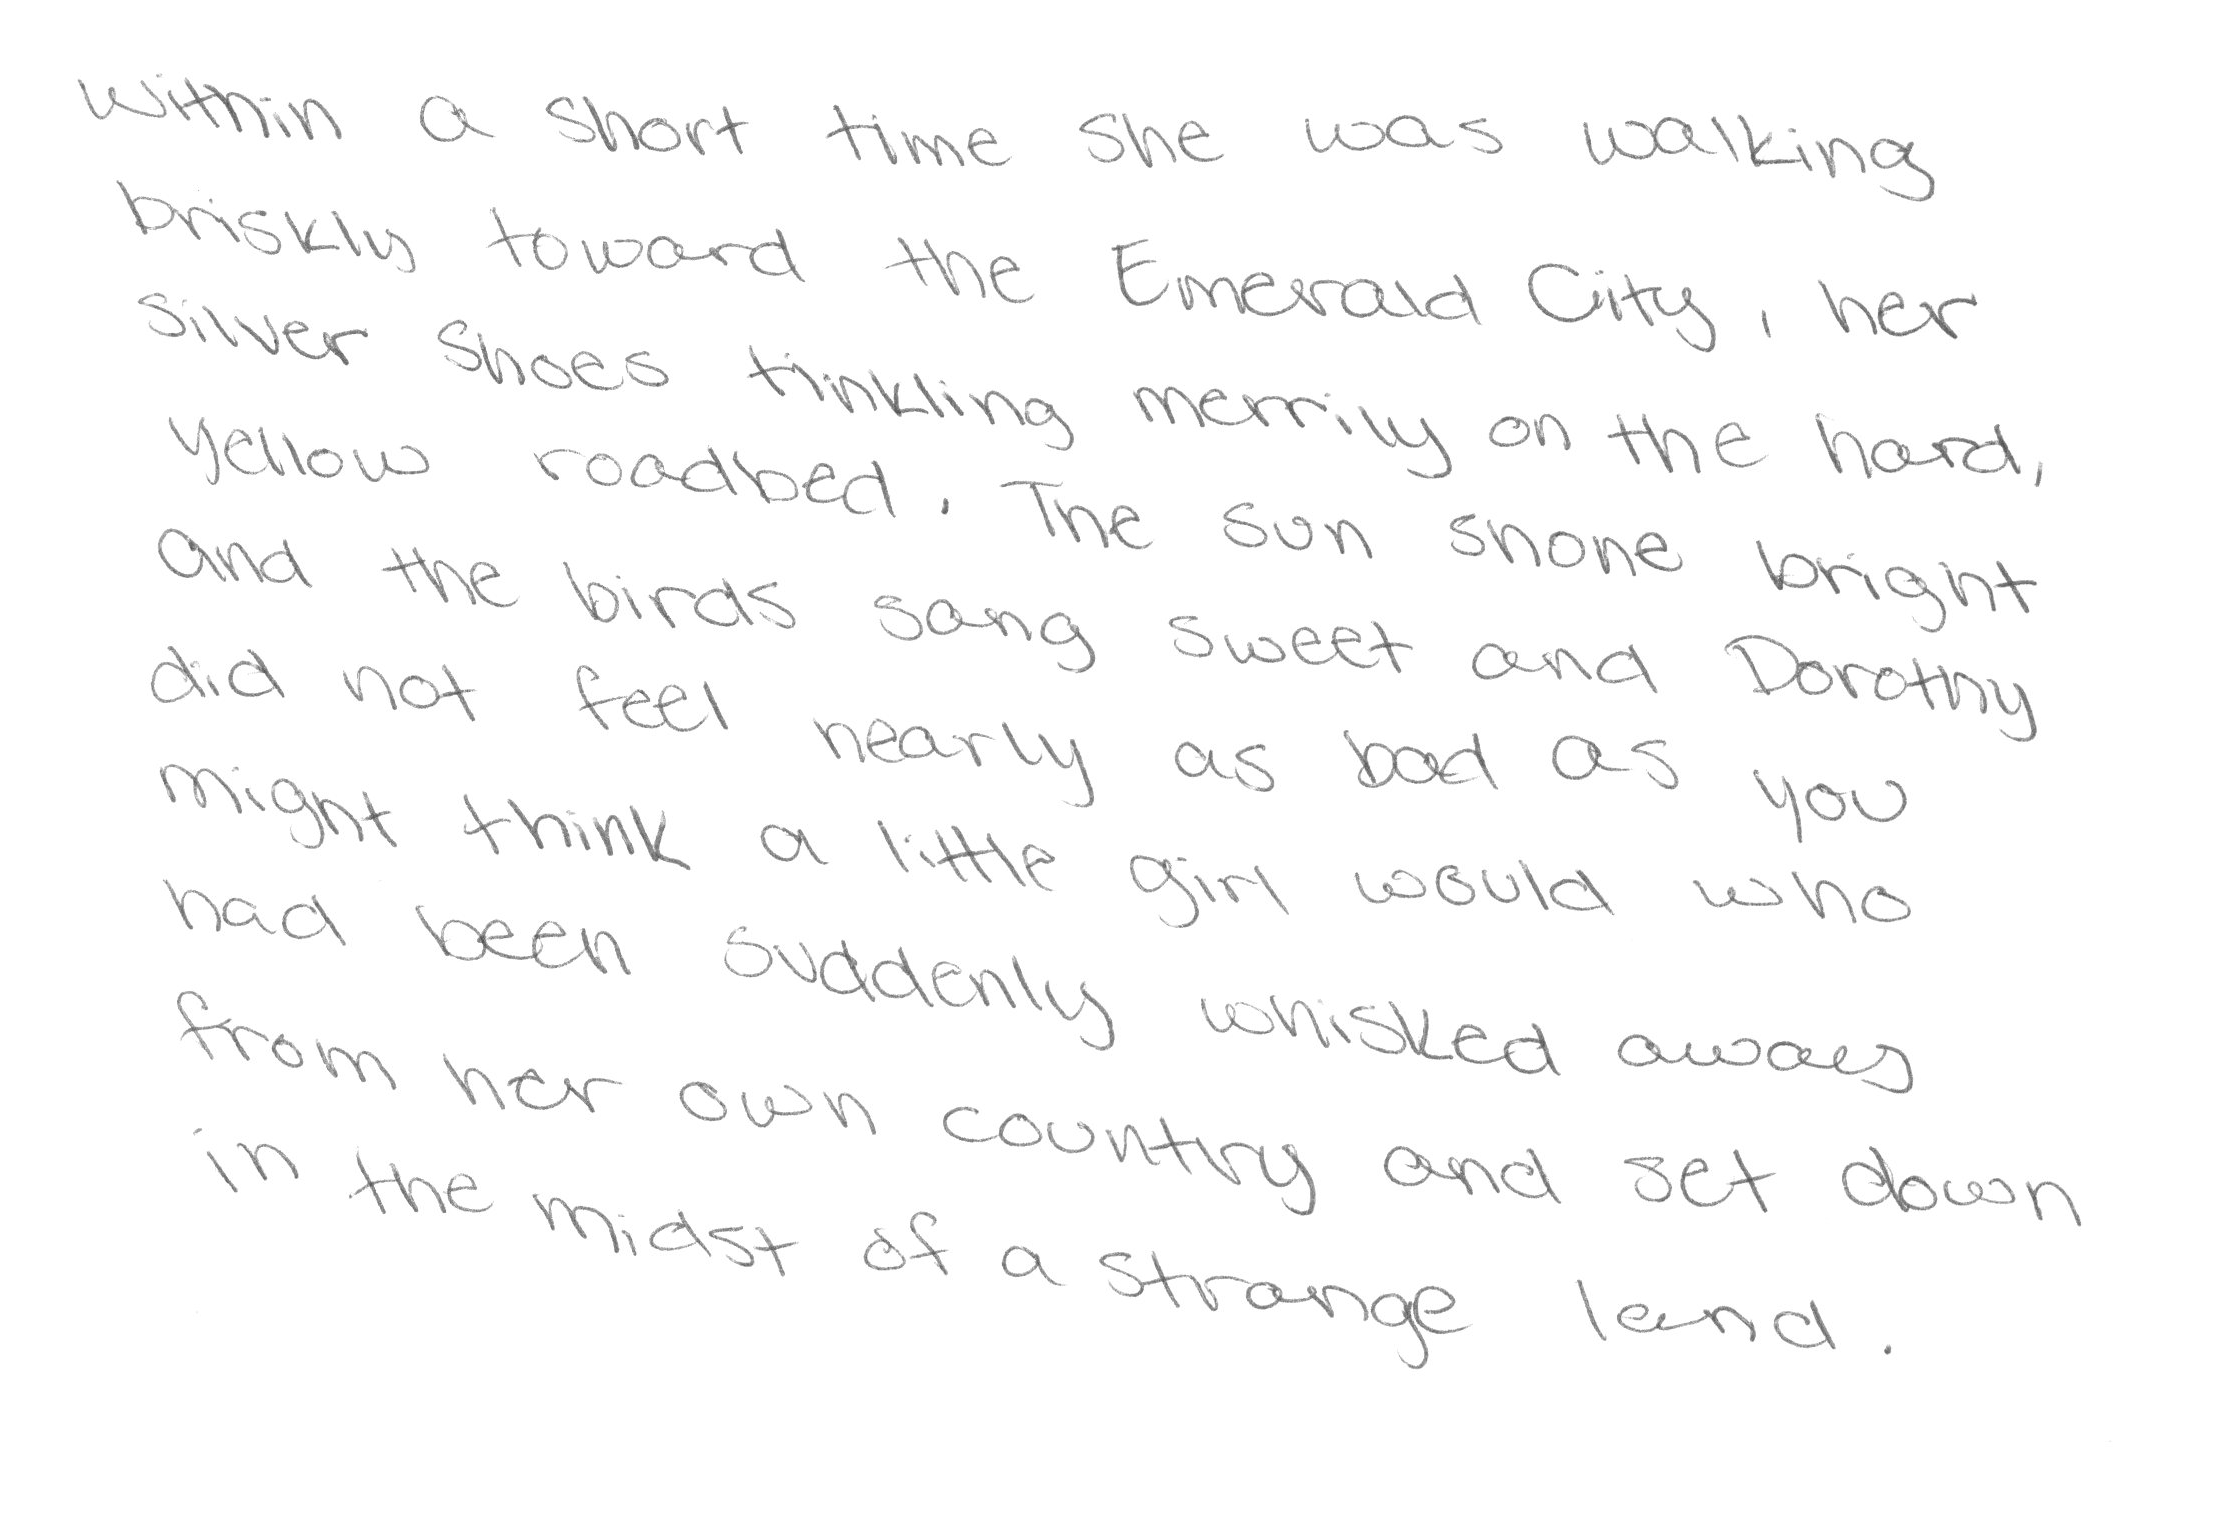 Within a short time she was walking
briskly toward the Emerald City, her
Silver Shoes tinkling merrily on the hard,
yellow roadbed. The sun shone bright
and the birds sang sweet and Dorothy
did not feel nearly as bad as you
might think a little girl would who
had been suddenly whisked away
from her own country and set down
in the midst of a strange land.